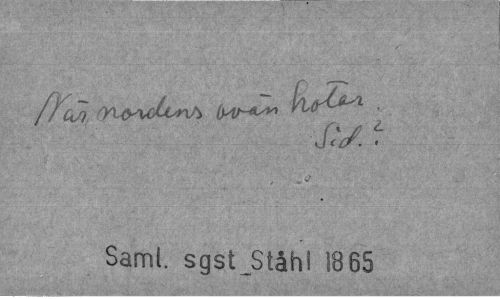 När nordens ovän hotar.
Sid.?
Saml. sgst_Ståhl 1865